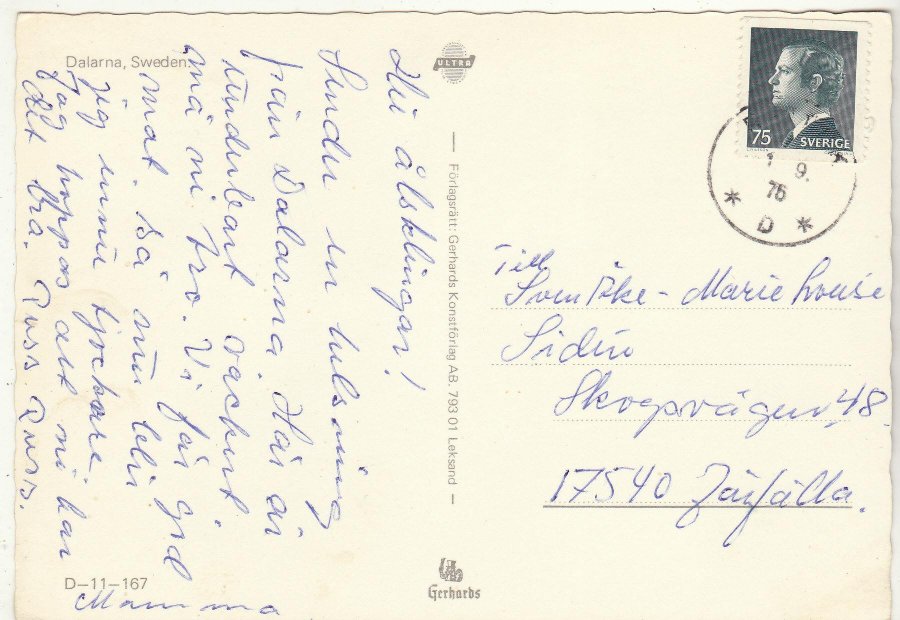 Dalarna, Sweden.
Hei älsklingar!
Sender en hälsning
från Dalarna Här är
underbart vackert.
må ni tro. Vi får god
mat. så nu blir
jag ännu tjockare.
Jag hoppas att ni har
det bra. Puss Puss.
Mamma
D-11-167
ULTRA
— Förlagsrätt: Gerhards Konstförlag AB. 793 01 Leksand —
Gerhards
75
SVERIGE
1 9.
76
* D *
Till
Sven Åke - Marie Louise
Sidén
Skogsvägen 48
17540 Järfälla.